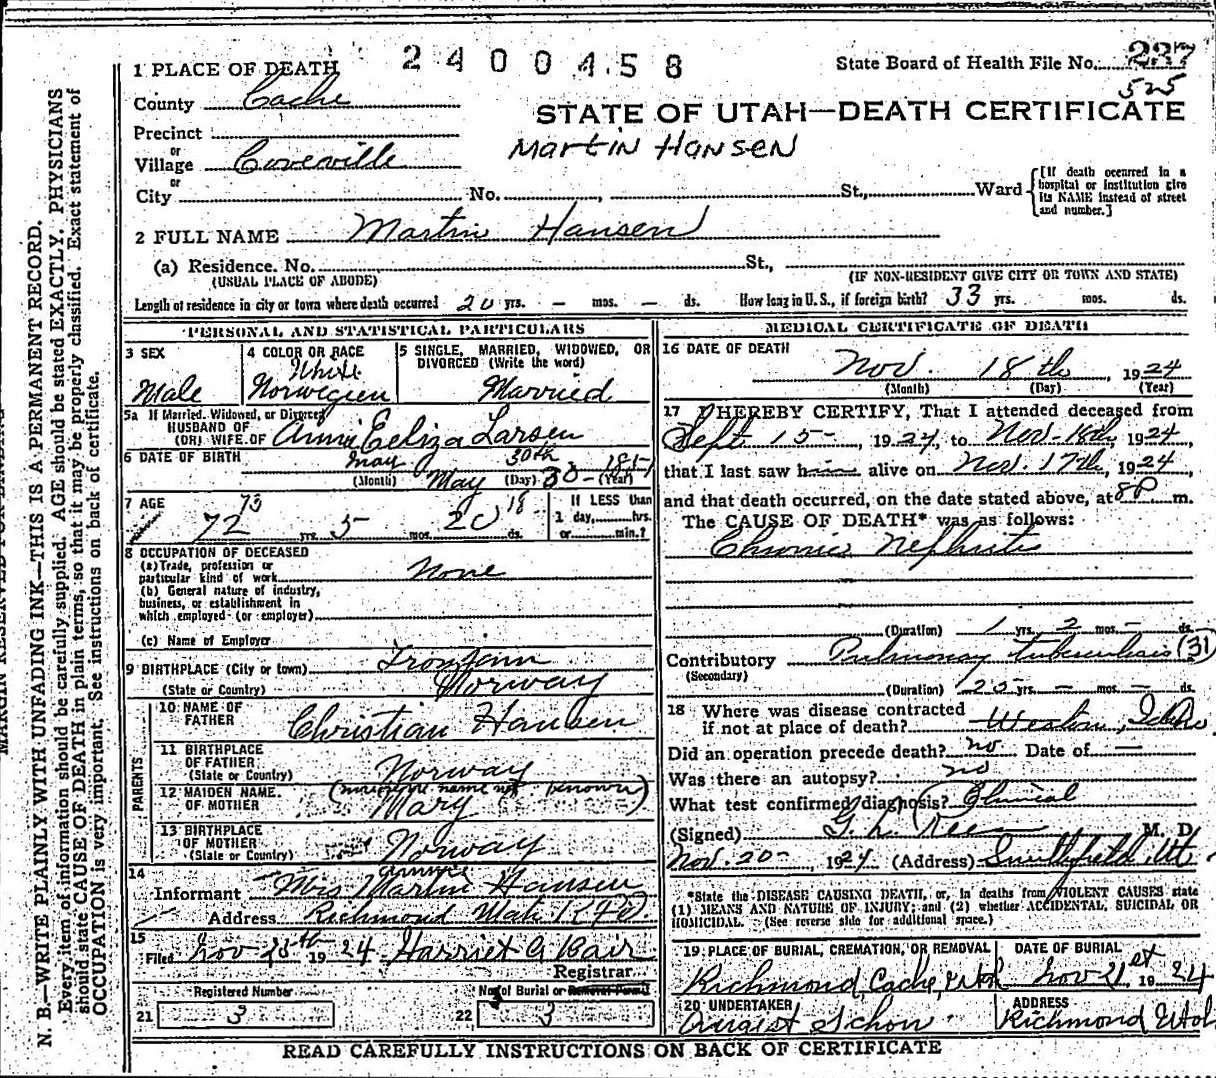 2400458
State Board of Health File No. 237
525
1 PLACE OF DEATH
County Cache
STATE OF UTAH—DEATH CERTIFICATE
Precinct
or
Village Coveville
Martin Hansen
or
City No. , St., Ward
[If death occurred in a hospital or institution give its NAME instead of street and number.]
2 FULL NAME Martin Hansen
(a) Residence. No. St.,
(USUAL PLACE OF ABODE) (IF NON-RESIDENT GIVE CITY OR TOWN AND STATE)
Length of residence in city or town where death occurred 20 yrs. — mos. — ds. How long in U. S., if foreign birth? 33 yrs. mos. ds.
PERSONAL AND STATISTICAL PARTICULARS
3 SEX
Male
4 COLOR OR RACE
White
Norwegian
5 SINGLE, MARRIED, WIDOWED, OR DIVORCED (Write the word)
Married
5a If Married, Widowed, or Divorced
HUSBAND OF
(OR) WIFE OF Annie Eeliza Larsen
6 DATE OF BIRTH May 30th 1851
(Month) May (Day) 30 - (Year)
7 AGE
73 18
72 yrs. 5 mos. 20 ds.
If LESS than
1 day, hrs.
or min.?
8 OCCUPATION OF DECEASED
(a) Trade, profession or
particular kind of work None
(b) General nature of industry,
business, or establishment in
which employed (or employer)
(c) Name of Employer
9 BIRTHPLACE (City or town) Tronjem
(State or Country) Norway
PARENTS
10 NAME OF
FATHER Christian Hansen
11 BIRTHPLACE
OF FATHER
(State or Country) Norway
12 MAIDEN NAME
OF MOTHER (maiden name not known)
Mary
13 BIRTHPLACE
OF MOTHER
(State or Country) Norway
14
Informant Mrs Martin Hansen
Address Richmond Utah RFD.
15
Filed Nov 25th 1924 Harriet A Bair
Registrar
Registered Number
21 3
No. of Burial or Removal Permit
22 3
MEDICAL CERTIFICATE OF DEATH
16 DATE OF DEATH
Nov. 18th, 1924
(Month) (Day) (Year)
17 I HEREBY CERTIFY, That I attended deceased from
Sept 15-, 1924, to Nov-18th, 1924,
that I last saw him alive on Nov. 17th, 1924,
and that death occurred, on the date stated above, at 8P m.
The CAUSE OF DEATH* was as follows:
Chronic Nephritis
(Duration) 1 yrs. 2 mos. — ds.
Contributory Pulmonary tuberculosis (31)
(Secondary)
(Duration) 25 yrs. — mos. — ds.
18 Where was disease contracted
if not at place of death? Weston, Idaho
Did an operation precede death? no Date of —
Was there an autopsy? no
What test confirmed diagnosis? Clinical
(Signed) G. L. Rees M. D.
Nov. 20- 1924 (Address) Smithfield, Ut
*State the DISEASE CAUSING DEATH, or, in deaths from VIOLENT CAUSES state
(1) MEANS AND NATURE OF INJURY; and (2) whether ACCIDENTAL, SUICIDAL OR
HOMICIDAL. (See reverse side for additional space.)
19 PLACE OF BURIAL, CREMATION, OR REMOVAL
Richmond, Cache, Utah
DATE OF BURIAL
Nov 21st 1924
20 UNDERTAKER
August Schow
ADDRESS
Richmond Utah
READ CAREFULLY INSTRUCTIONS ON BACK OF CERTIFICATE
N. B.—WRITE PLAINLY WITH UNFADING INK—THIS IS A PERMANENT RECORD.
Every item of information should be carefully supplied. AGE should be stated EXACTLY. PHYSICIANS
should state CAUSE OF DEATH in plain terms, so that it may be properly classified. Exact statement of
OCCUPATION is very important. See instructions on back of certificate.